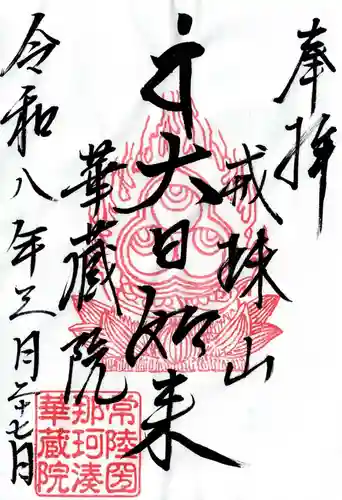 奉拝
戒珠山
大日如来
華蔵院
令和八年三月二十七日
常陸国
那珂湊
華蔵院